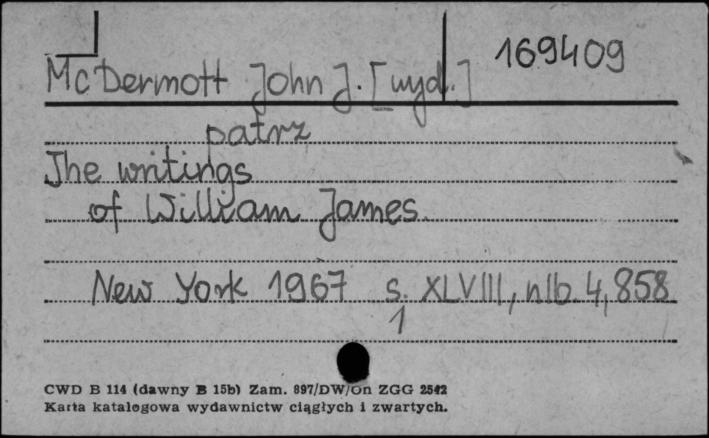 169409
McDermott John J. [wyd.]
patrz
The writings
of William James.
New York 1967 s. XLVIII, nlb. 4, 858
1
CWD B 114 (dawny B 15b) Zam. 897/DW/On ZGG 2542
Karta katalogowa wydawnictw ciągłych i zwartych.